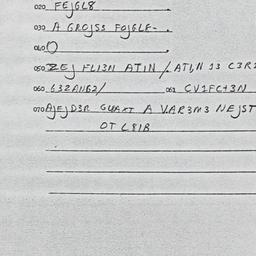 020 FEJGL8
030 A GROJSS FOJGLE-.
040 O
050 ZEJ FLI3N ATIN / ATI,N 13 C3R
060 63ZAIIG2/ 061 CV1FC+3N
070 AJEJD3R GUAXT A VAR3M3 NEJST
OT L8IB